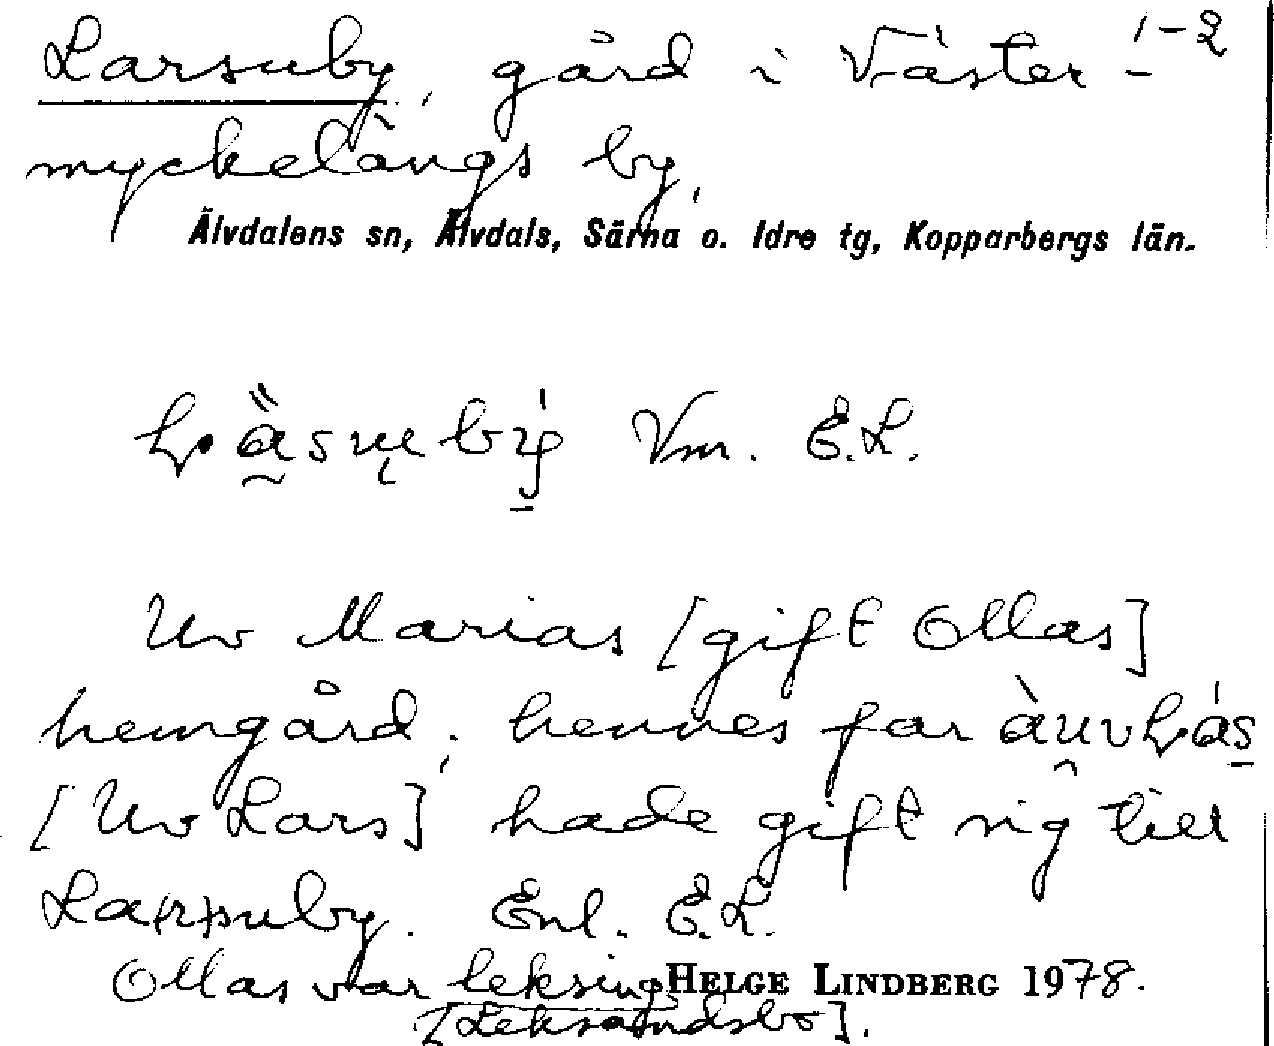 Larsuby, gård i Väster- 1-2
myckelängs by,
Älvdalens sn, Älvdals, Särna o. Idre tg, Kopparbergs län.
Vm. E.L.
Uv Marias [gift Ollas]
hemgård; hennes far
[Uv Lars] hade gift sig till
La(r)suby. Enl. E.L.
Ollas var leksing HELGE LINDBERG 1978.
[Leksandsbo].